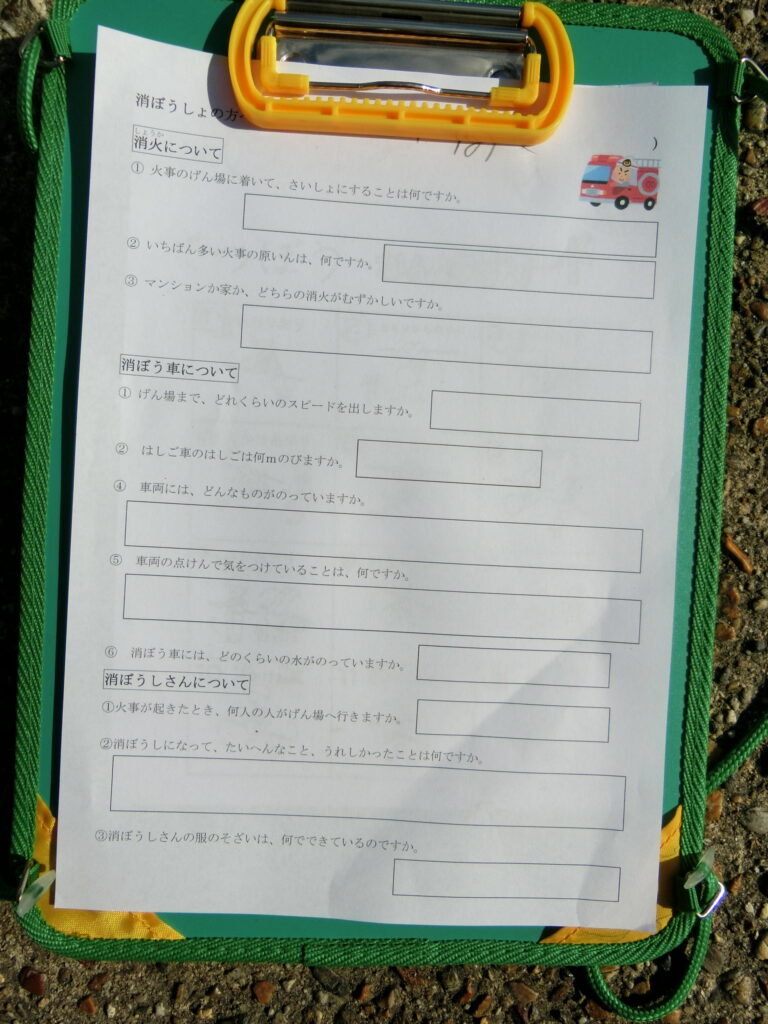 消ぼうしょの方へ
)
しょうか
消火について
① 火事のげん場に着いて、さいしょにすることは何ですか。
② いちばん多い火事の原いんは、何ですか。
③ マンションか家か、どちらの消火がむずかしいですか。
消ぼう車について
① げん場まで、どれくらいのスピードを出しますか。
② はしご車のはしごは何mのびますか。
④ 車両には、どんなものがのっていますか。
⑤ 車両の点けんで気をつけていることは、何ですか。
⑥ 消ぼう車には、どのくらいの水がのっていますか。
消ぼうしさんについて
①火事が起きたとき、何人の人がげん場へ行きますか。
②消ぼうしになって、たいへんなこと、うれしかったことは何ですか。
③消ぼうしさんの服のそざいは、何でできているのですか。